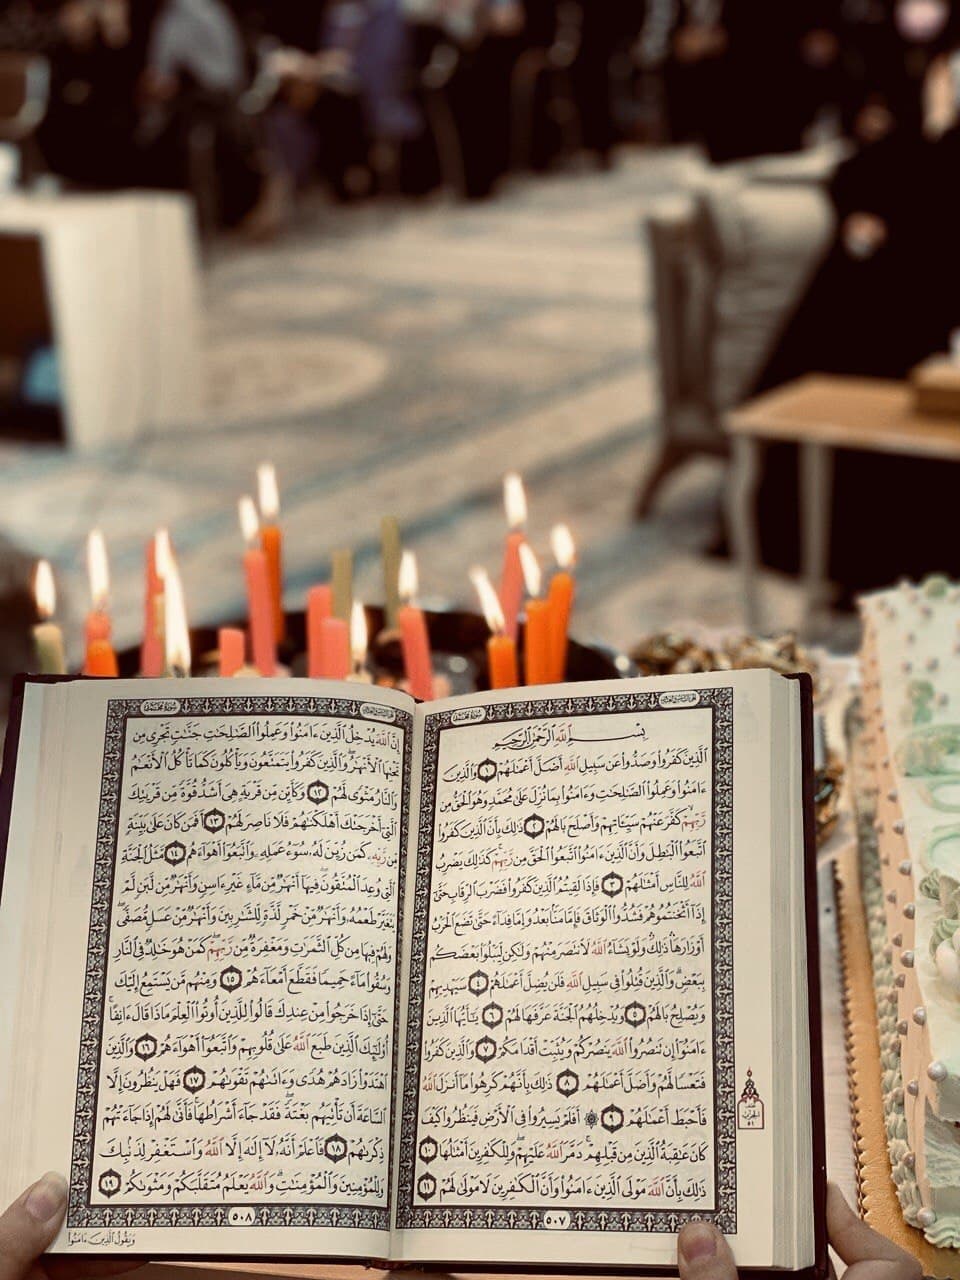 سورة محمد
بسم الله الرحمن الرحيم
الذين كفروا وصدوا عن سبيل الله أضل أعمالهم ١ والذين
ءامنوا وعملوا الصالحات وءامنوا بما نزل على محمد وهو الحق من
ربهم كفر عنهم سيئاتهم وأصلح بالهم ٢ ذلك بأن الذين كفروا
اتبعوا الباطل وأن الذين ءامنوا اتبعوا الحق من ربهم كذلك يضرب
الله للناس أمثالهم ٣ فإذا لقيتم الذين كفروا فضرب الرقاب حتى
إذا أثخنتموهم فشدوا الوثاق فإما منا بعد وإما فداء حتى تضع الحرب
أوزارها ذلك ولو يشاء الله لانتصر منهم ولكن ليبلوا بعضكم
ببعض والذين قتلوا في سبيل الله فلن يضل أعمالهم ٤ سيهديهم
ويصلح بالهم ٥ ويدخلهم الجنة عرفها لهم ٦ يا أيها الذين
ءامنوا إن تنصروا الله ينصركم ويثبت أقدامكم ٧ والذين كفروا
فتعسا لهم وأضل أعمالهم ٨ ذلك بأنهم كرهوا ما أنزل الله
فأحبط أعمالهم ٩ ۞ أفلم يسيروا في الأرض فينظروا كيف
كان عاقبة الذين من قبلهم دمر الله عليهم وللكافرين أمثالها ١٠
ذلك بأن الله مولى الذين ءامنوا وأن الكافرين لا مولى لهم ١١
٥٠٧
الحزب
٥١
سورة محمد
إن الله يدخل الذين ءامنوا وعملوا الصالحات جنات تجري من
تحتها الأنهار والذين كفروا يتمتعون ويأكلون كما تأكل الأنعام
والنار مثوى لهم ١٢ وكأين من قرية هي أشد قوة من قريتك
التي أخرجتك أهلكناهم فلا ناصر لهم ١٣ أفمن كان على بينة
من ربه كمن زين له سوء عمله واتبعوا أهواءهم ١٤ مثل الجنة
التي وعد المتقون فيها أنهار من ماء غير ءاسن وأنهار من لبن لم
يتغير طعمه وأنهار من خمر لذة للشاربين وأنهار من عسل مصفى
ولهم فيها من كل الثمرات ومغفرة من ربهم كمن هو خالد في النار
وسقوا ماء حميما فقطع أمعاءهم ١٥ ومنهم من يستمع إليك
حتى إذا خرجوا من عندك قالوا للذين أوتوا العلم ماذا قال ءانفا
أولئك الذين طبع الله على قلوبهم واتبعوا أهواءهم ١٦ والذين
اهتدوا زادهم هدى وءاتاهم تقواهم ١٧ فهل ينظرون إلا
الساعة أن تأتيهم بغتة فقد جاء أشراطها فأنى لهم إذا جاءتهم
ذكراهم ١٨ فاعلم أنه لا إله إلا الله واستغفر لذنبك
وللمؤمنين والمؤمنات والله يعلم متقلبكم ومثواكم ١٩
٥٠٨
ويقول الذين ءامنوا